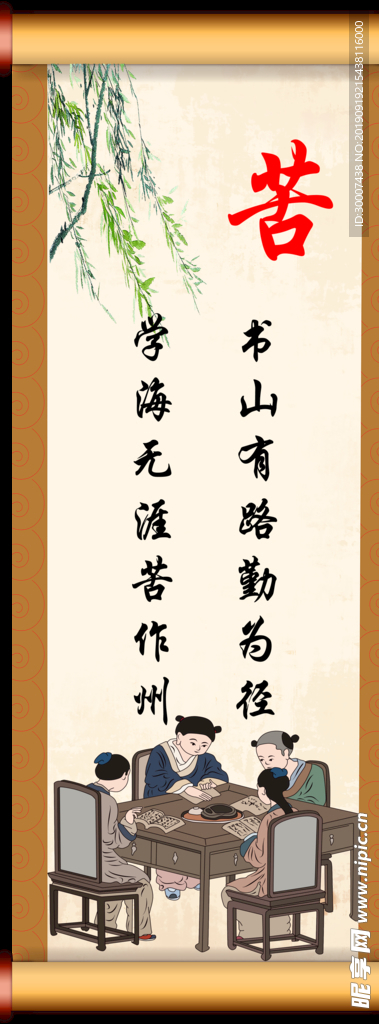 苦
书山有路勤为径
学海无涯苦作州
ID:30007438 NO:20190919215438116000
昵享网 www.nipic.cn